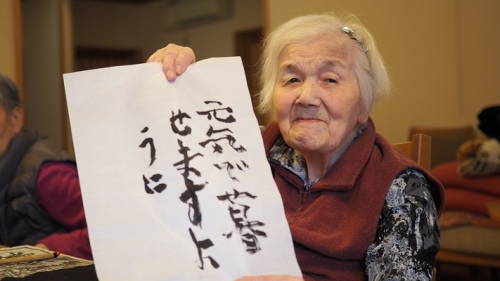 元気で暮
せますよ
うに